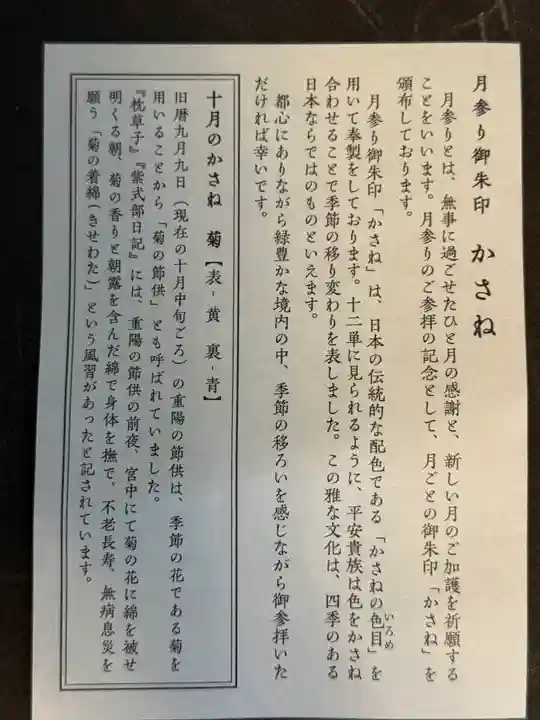 月参り御朱印　かさね
月参りとは、無事に過ごせたひと月の感謝と、新しい月のご加護を祈願する
ことをいいます。月参りのご参拝の記念として、月ごとの御朱印「かさね」を
頒布しております。
月参り御朱印「かさね」は、日本の伝統的な配色である「かさねの色目」を
いろめ
用いて奉製をしております。十二単に見られるように、平安貴族は色をかさね
合わせることで季節の移り変わりを表しました。この雅な文化は、四季のある
日本ならではのものといえます。
都心にありながら緑豊かな境内の中、季節の移ろいを感じながら御参拝いた
だければ幸いです。
十月のかさね　菊【表-黄 裏-青】
旧暦九月九日（現在の十月中旬ごろ）の重陽の節供は、季節の花である菊を
用いることから「菊の節供」とも呼ばれていました。
『枕草子』『紫式部日記』には、重陽の節供の前夜、宮中にて菊の花に綿を被せ
明くる朝、菊の香りと朝露を含んだ綿で身体を撫で、不老長寿、無病息災を
願う「菊の着綿(きせわた)」という風習があったと記されています。